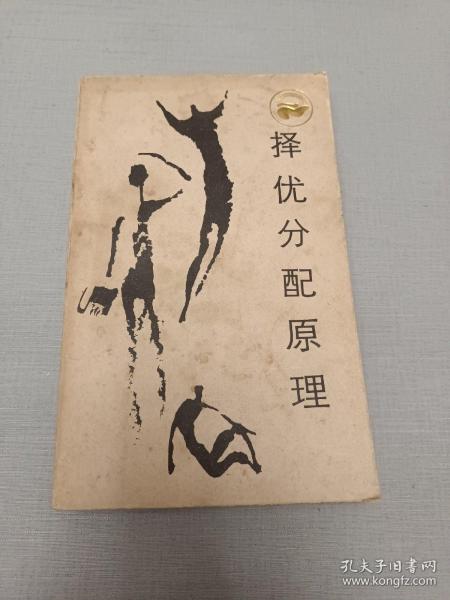 择优分配原理
孔夫子旧书网
www.kongfz.com